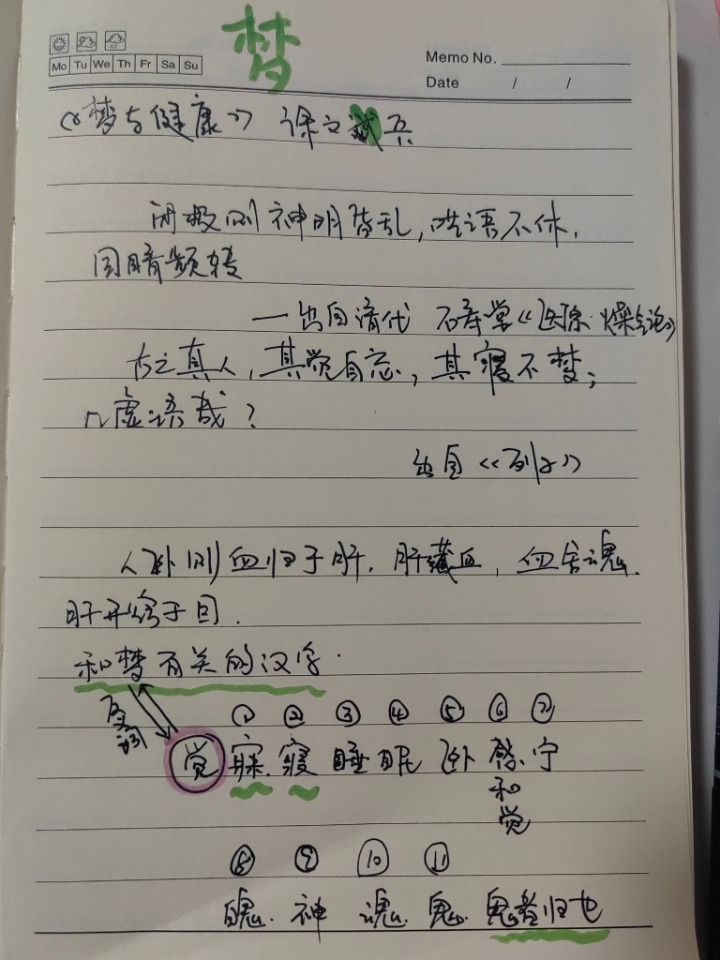 梦
Memo No.
Mo Tu We Th Fr Sa Su
Date / /
《梦与健康》 徐文兵
闭极则神明皆乱,哄语不休,
目暗频转
—出自清代 石寿堂《医原·燥气论》
古之真人,其觉自忘,其寝不梦;
几虚语哉?
出自《列子》
人卧则血归于肝,肝藏血,血舍魂.
肝开窍于目.
和梦有关的汉字.
反词
① ② ③ ④ ⑤ ⑥ ⑦
觉 寐.寝 睡 眠 卧 宁
和
觉
⑧ ⑨ ⑩ ⑪
魄.神 魂.鬼.鬼者归也